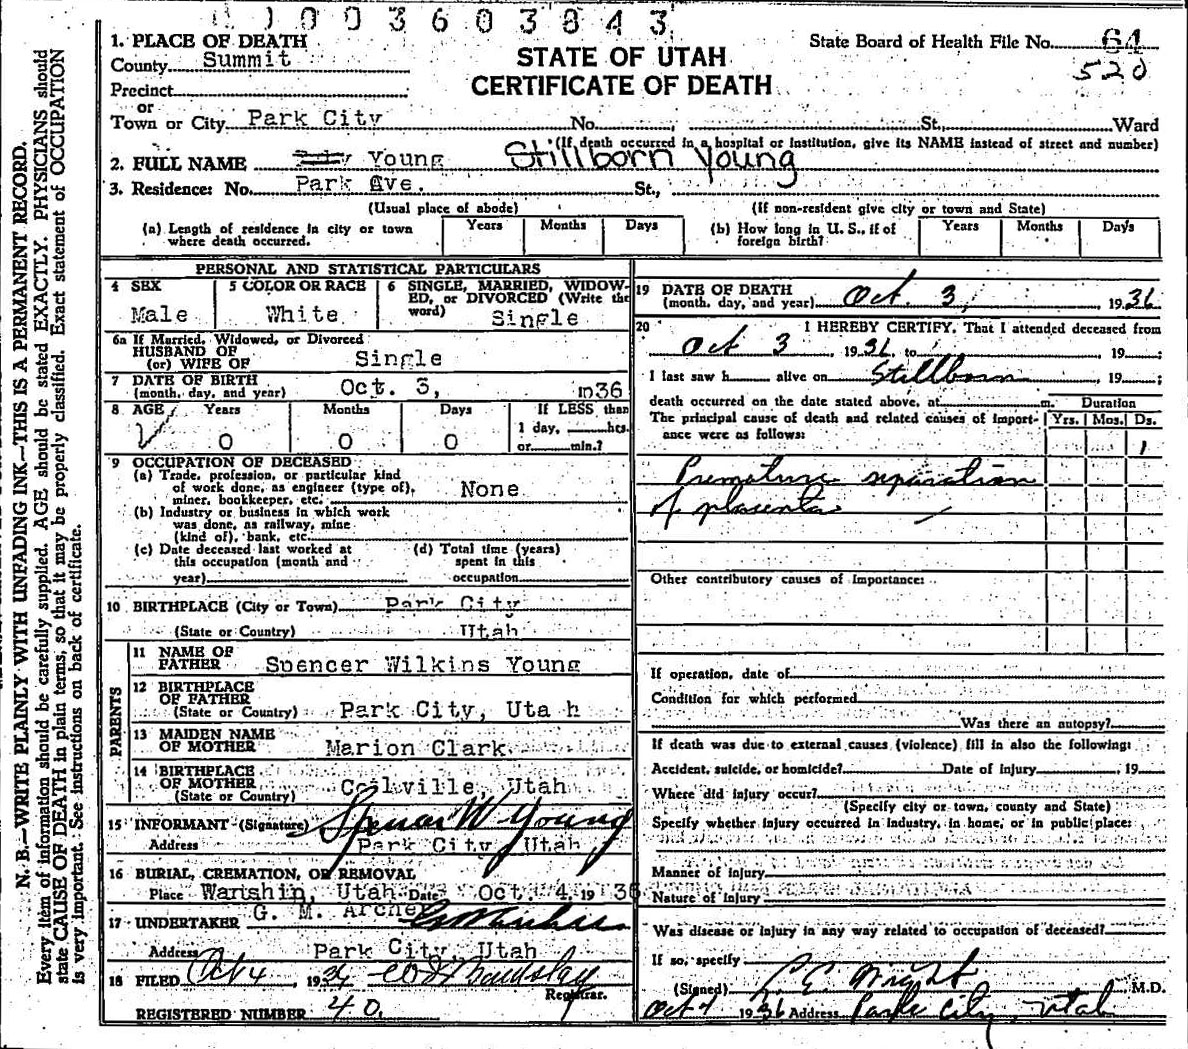 0 0 3 6 0 3 8 4 3
1. PLACE OF DEATH
County Summit
Precinct
or
Town or City Park City No. St., Ward
STATE OF UTAH
CERTIFICATE OF DEATH
State Board of Health File No. 64
520
(If death occurred in a hospital or institution, give its NAME instead of street and number)
2. FULL NAME Young Stillborn Young
3. Residence: No. Park Ave. St.,
(Usual place of abode) (If non-resident give city or town and State)
(a) Length of residence in city or town where death occurred. Years Months Days
(b) How long in U. S., if of foreign birth? Years Months Days
PERSONAL AND STATISTICAL PARTICULARS
4 SEX
Male
5 COLOR OR RACE
White
6 SINGLE, MARRIED, WIDOWED, or DIVORCED (Write the word)
Single
6a If Married, Widowed, or Divorced
HUSBAND OF
(or) WIFE OF Single
7 DATE OF BIRTH
(month, day, and year) Oct. 3, 1936
8 AGE Years Months Days If LESS than
1 day, hrs.
0 0 0 or min.?
9 OCCUPATION OF DECEASED
(a) Trade, profession, or particular kind
of work done, as engineer (type of),
miner, bookkeeper, etc. None
(b) Industry or business in which work
was done, as railway, mine
(kind of), bank, etc.
(c) Date deceased last worked at
this occupation (month and
year)
(d) Total time (years)
spent in this
occupation
10 BIRTHPLACE (City or Town) Park City
(State or Country) Utah
PARENTS
11 NAME OF
FATHER Spencer Wilkins Young
12 BIRTHPLACE
OF FATHER
(State or Country) Park City, Uta h
13 MAIDEN NAME
OF MOTHER Marion Clark
14 BIRTHPLACE
OF MOTHER
(State or Country) Coalville, Utah
15 INFORMANT (Signature) Spencer W Young
Address Park City, Utah
16 BURIAL, CREMATION, OR REMOVAL
Place Wanship, Utah Date Oct. 4, 1936
17 UNDERTAKER G. M. Archer
Address Park City, Utah
18 FILED Oct 4, 1936
Registrar.
REGISTERED NUMBER 40.
19 DATE OF DEATH
(month, day, and year) Oct. 3, 1936
20 I HEREBY CERTIFY, That I attended deceased from
Oct 3, 1936 to , 19 ;
I last saw h alive on Stillborn, 19 ;
death occurred on the date stated above, at m. Duration
The principal cause of death and related causes of importance were as follows: Yrs. Mos. Ds.
1
Premature separation
of placenta
Other contributory causes of importance:
If operation, date of
Condition for which performed
Was there an autopsy?
If death was due to external causes (violence) fill in also the following:
Accident, suicide, or homicide? Date of injury , 19
Where did injury occur?
(Specify city or town, county and State)
Specify whether injury occurred in industry, in home, or in public place:
Manner of injury
Nature of injury
Was disease or injury in any way related to occupation of deceased?
If so, specify
(Signed) Wright M.D.
Oct 1936 Address Park City, Utah
N. B.—WRITE PLAINLY WITH UNFADING INK—THIS IS A PERMANENT RECORD.
Every item of information should be carefully supplied. AGE should be stated EXACTLY. PHYSICIANS should
state CAUSE OF DEATH in plain terms, so that it may be properly classified. Exact statement of OCCUPATION
is very important. See instructions on back of certificate.